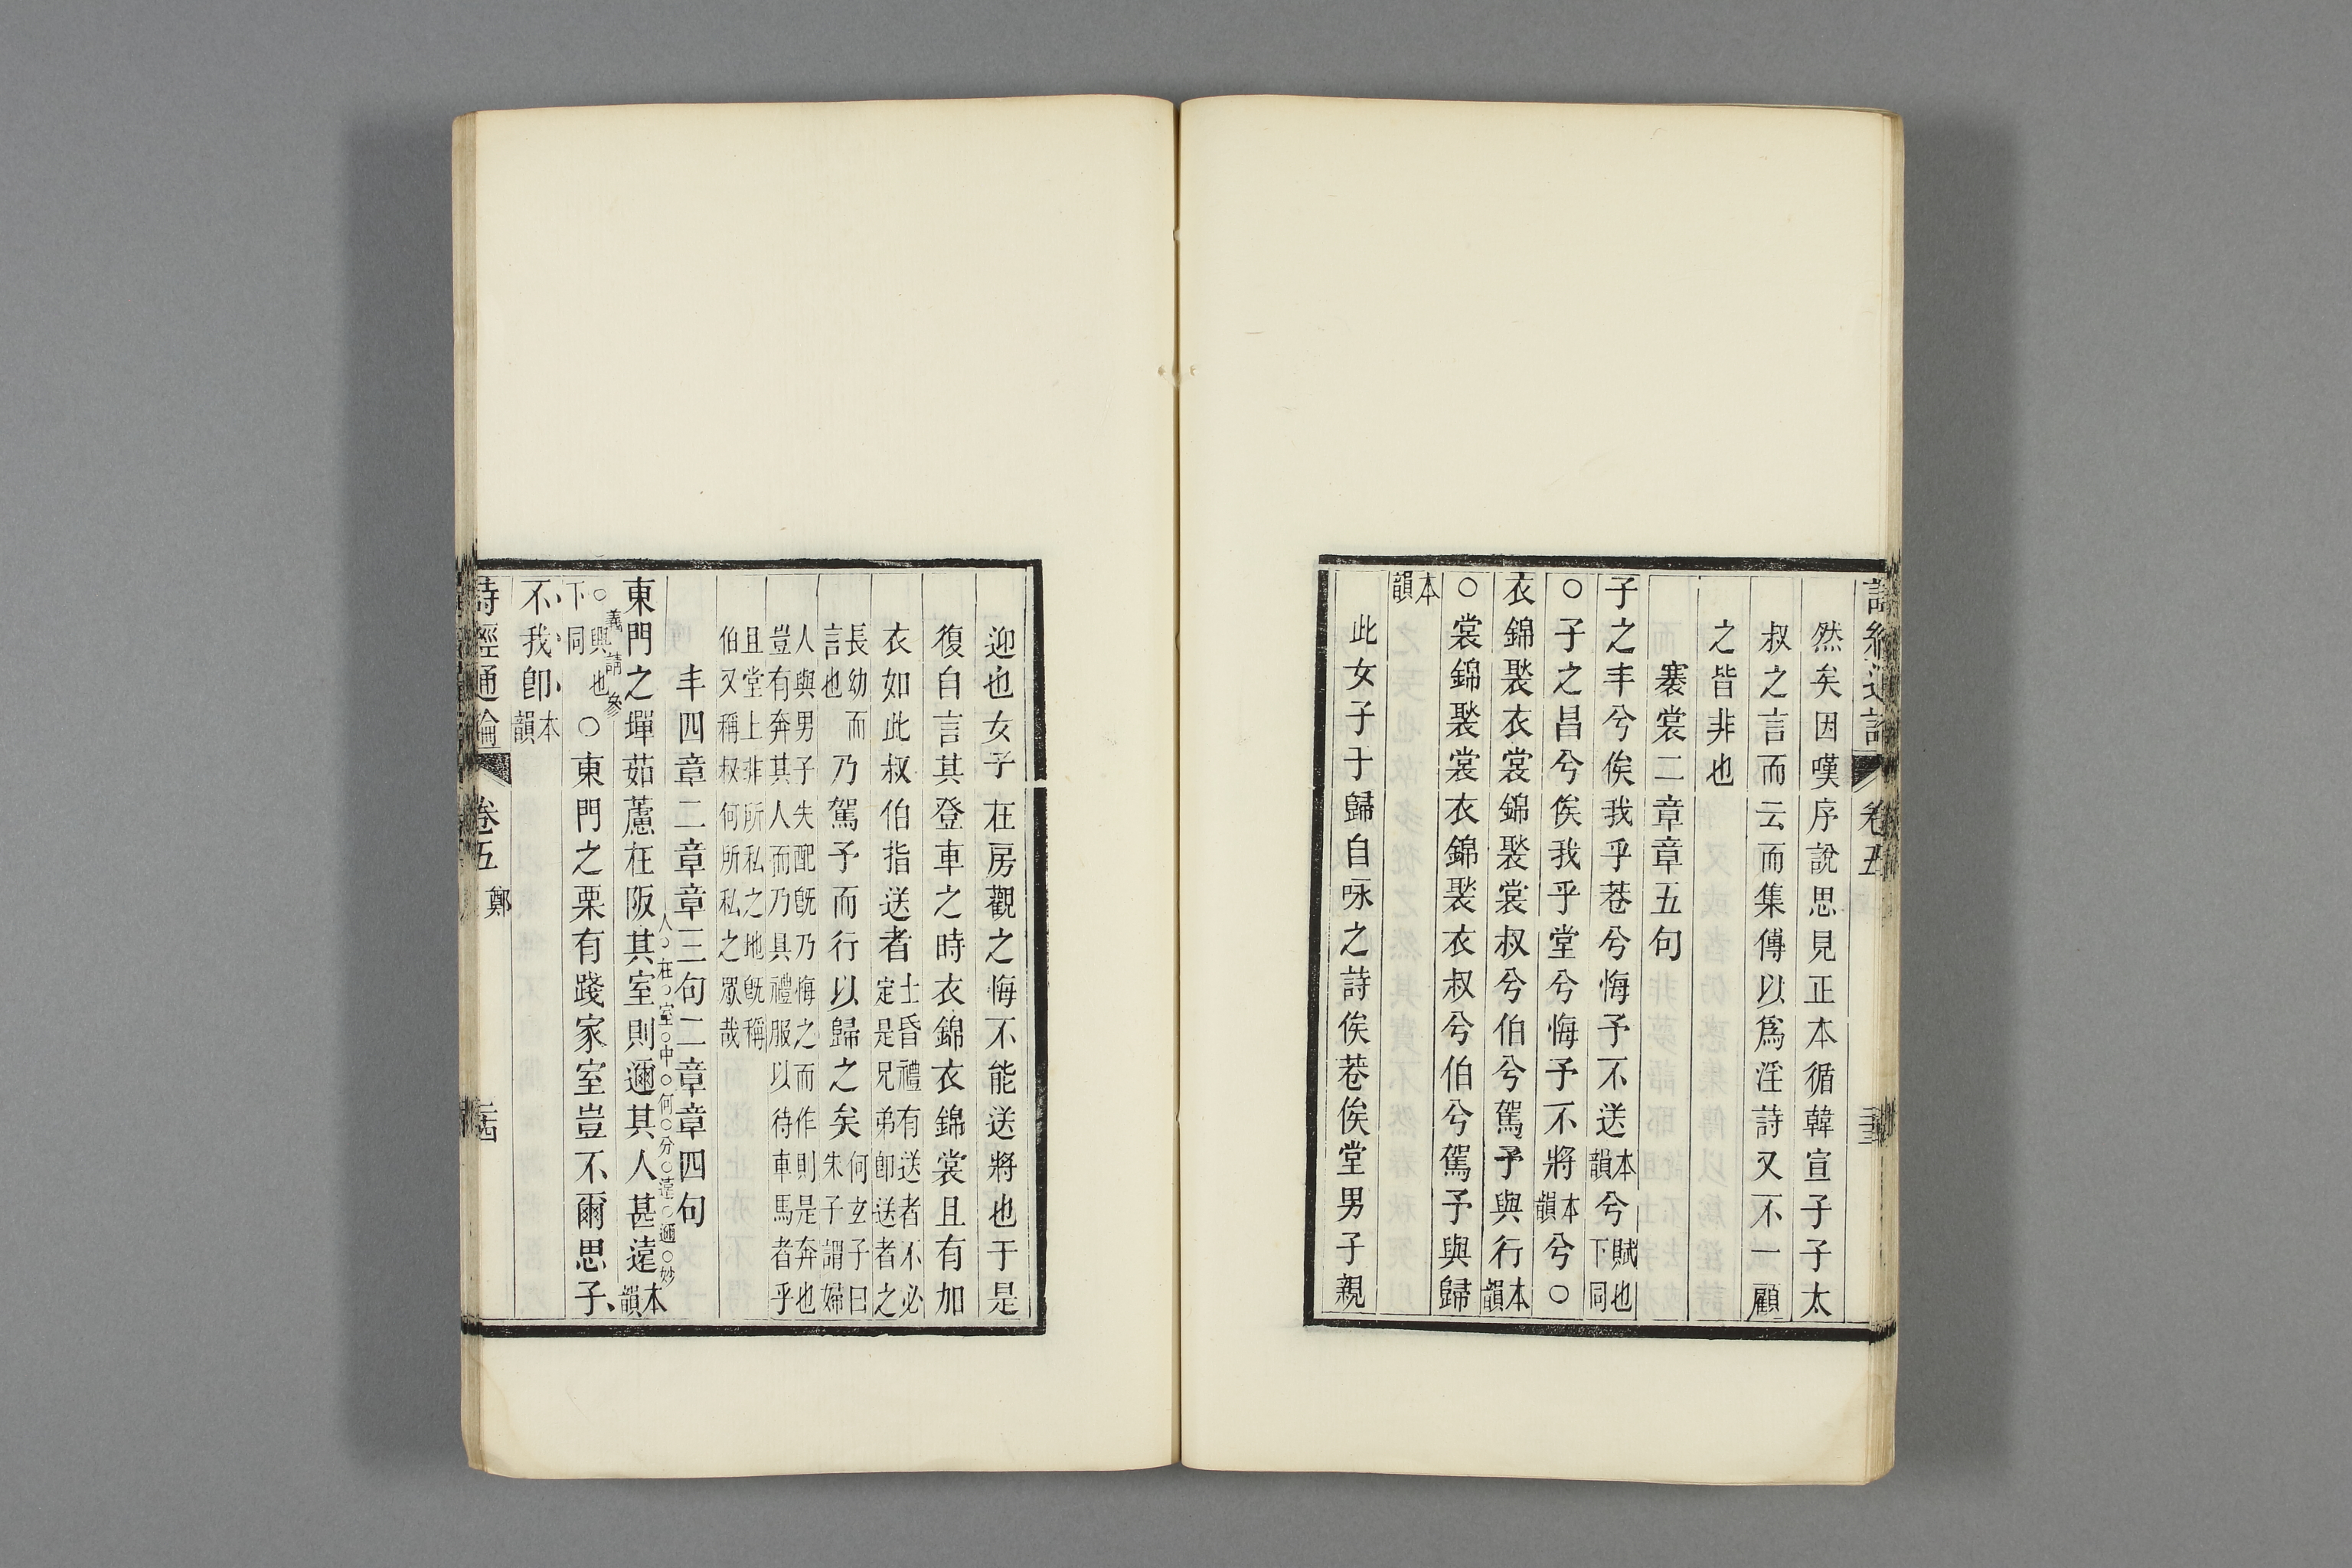 詩經通論 卷五
然矣因嘆序說思見正本循韓宣子子太
叔之言而云而集傳以爲淫詩又不一顧
之皆非也
褰裳二章章五句
子之丰兮俟我乎巷兮悔予不送本韻兮賦也下同
○子之昌兮俟我乎堂兮悔予不將本韻兮○
衣錦褧衣裳錦褧裳叔兮伯兮駕予與行本韻
○裳錦褧裳衣錦褧衣叔兮伯兮駕予與歸
本韻
此女子于歸自咏之詩俟巷俟堂男子親
迎也女子在房觀之悔不能送將也于是
復自言其登車之時衣錦衣錦裳且有加
衣如此叔伯指送者士昏禮有送者不必定是兄弟卽送者之
長幼而言也乃駕予而行以歸之矣何玄子曰朱子謂婦
人與男子失配旣乃悔之而作則是奔也豈有奔其人而乃具禮服以待車馬者乎
且堂上非所私之地旣稱伯又稱叔何所私之眾哉
丰四章二章章三句二章章四句
東門之墠茹藘在阪其室則邇其人甚遠本韻
人在室中何分遠邇妙
○興也下同○東門之栗有踐家室豈不爾思子
義請參
不我卽本韻
詩經通論 卷五 鄭 二十四